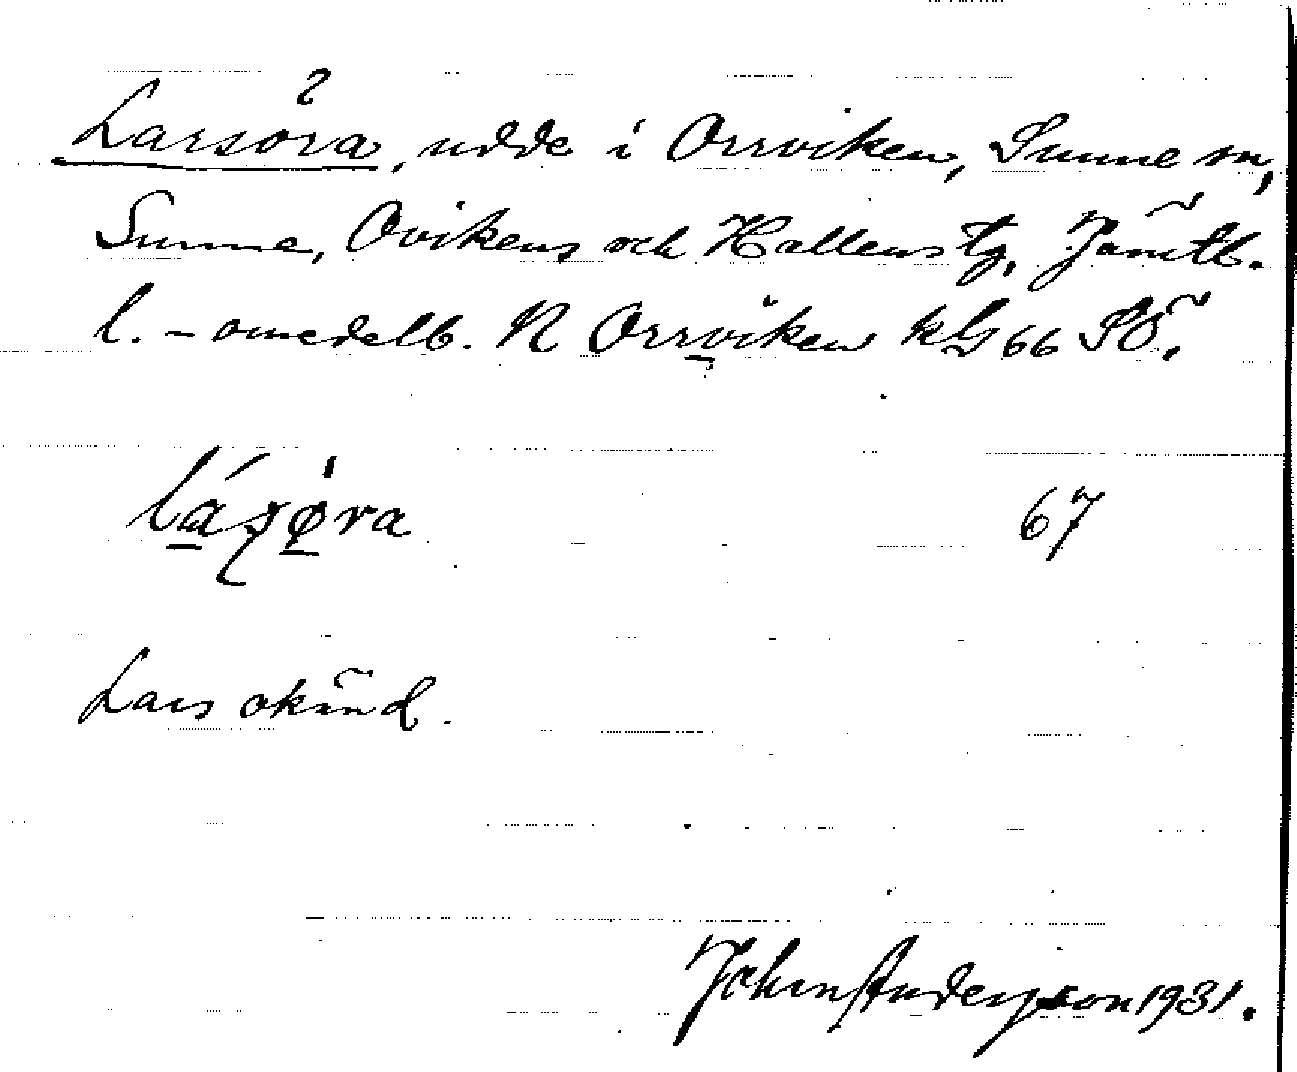 Larsöra, udde i Orrviken, Sunne sn,
Sunne, Ovikens och Hallens tg, Jämtl.
l. - omedelb. N Orrviken kG 66 SÖ.
67
Lars okänd.
John Andersson 1931.